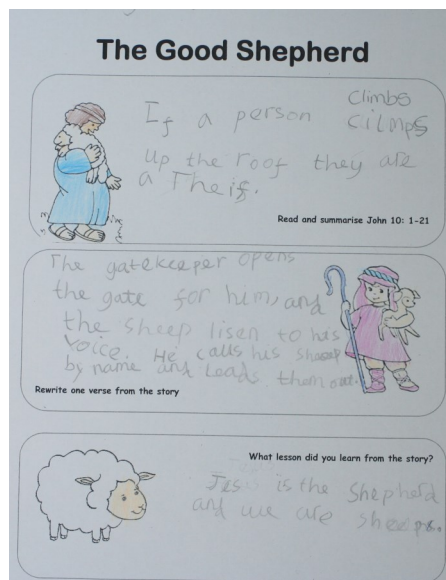 The Good Shepherd
Climbs
If a person cilmps
up the roof they are
a Theif.
Read and summarise John 10: 1-21
The gatekeeper opens
the gate for him, and
the sheep lisen to his
voice. He calls his sheep
by name and leads them out.
Rewrite one verse from the story
What lesson did you learn from the story?
Jes is the Shepherd
and we are sheeps.